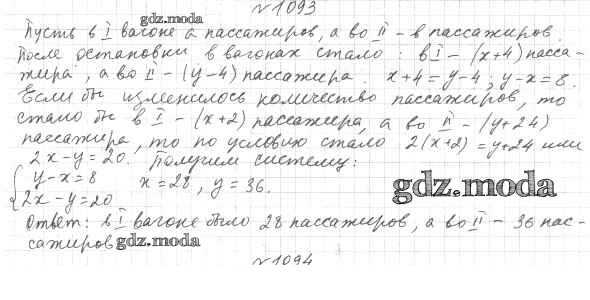 №1093
gdz.moda
Пусть в I вагоне a пассажиров, а во II – в пассажиров.
После остановки в вагонах стало: в I – (x+4) пасса-
жира, а во II – (y-4) пассажира. x+4=y-4; y-x=8.
Если бы изменилось количество пассажиров, то
стало бы в I – (x+2) пассажира, а во II – (y+24)
пассажира, то по условию стало 2(x+2)=y+24 или
2x-y=20. Получим систему:
{ y-x=8
2x-y=20 x=28, y=36.
gdz.moda
Ответ: в I вагоне было 28 пассажиров, а во II – 36 пас-
сажиров gdz.moda
№1094